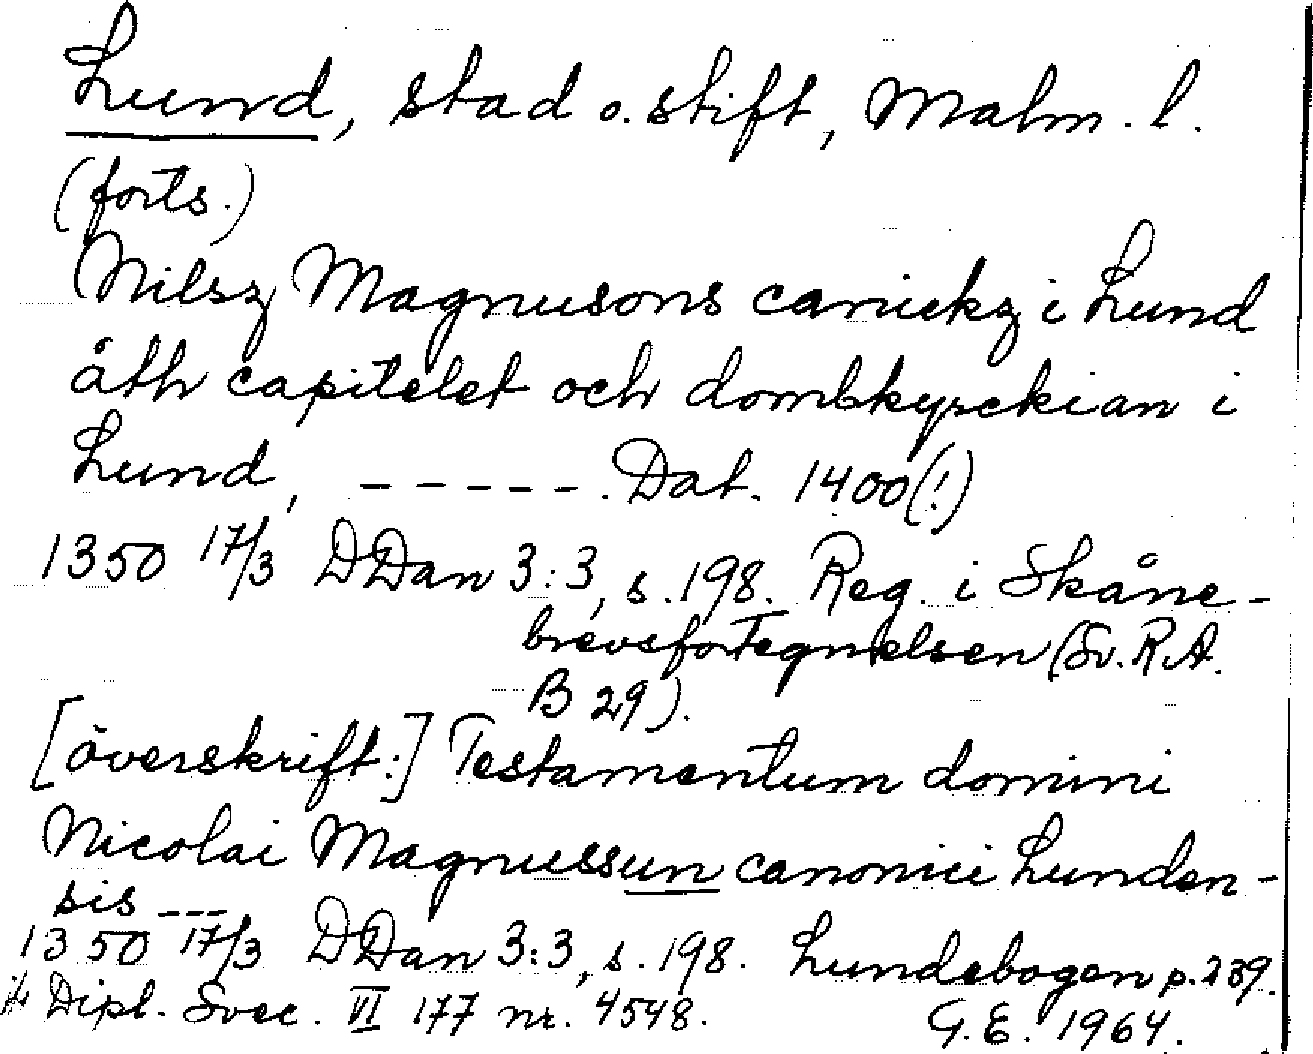 Lund, stad o. stift, Malm. l.
(forts.)
Nilsz Magnusons canickz i Lund
åth capitelet och dombkyrckian i
Lund, - - - - - . Dat. 1400(!)
1350 17/3 DDan 3:3, s. 198. Reg. i Skåne-
brevsfortegnelsen (Sv. R.A.
B 29).
[överskrift:] Testamentum domini
Nicolai Magnussun canonici Lunden-
sis - - -
1350 17/3 DDan 3:3, s. 198. Lundebogen p. 239.
Dipl. Svec. VI 177 nr. 4548.
G.E. 1964.